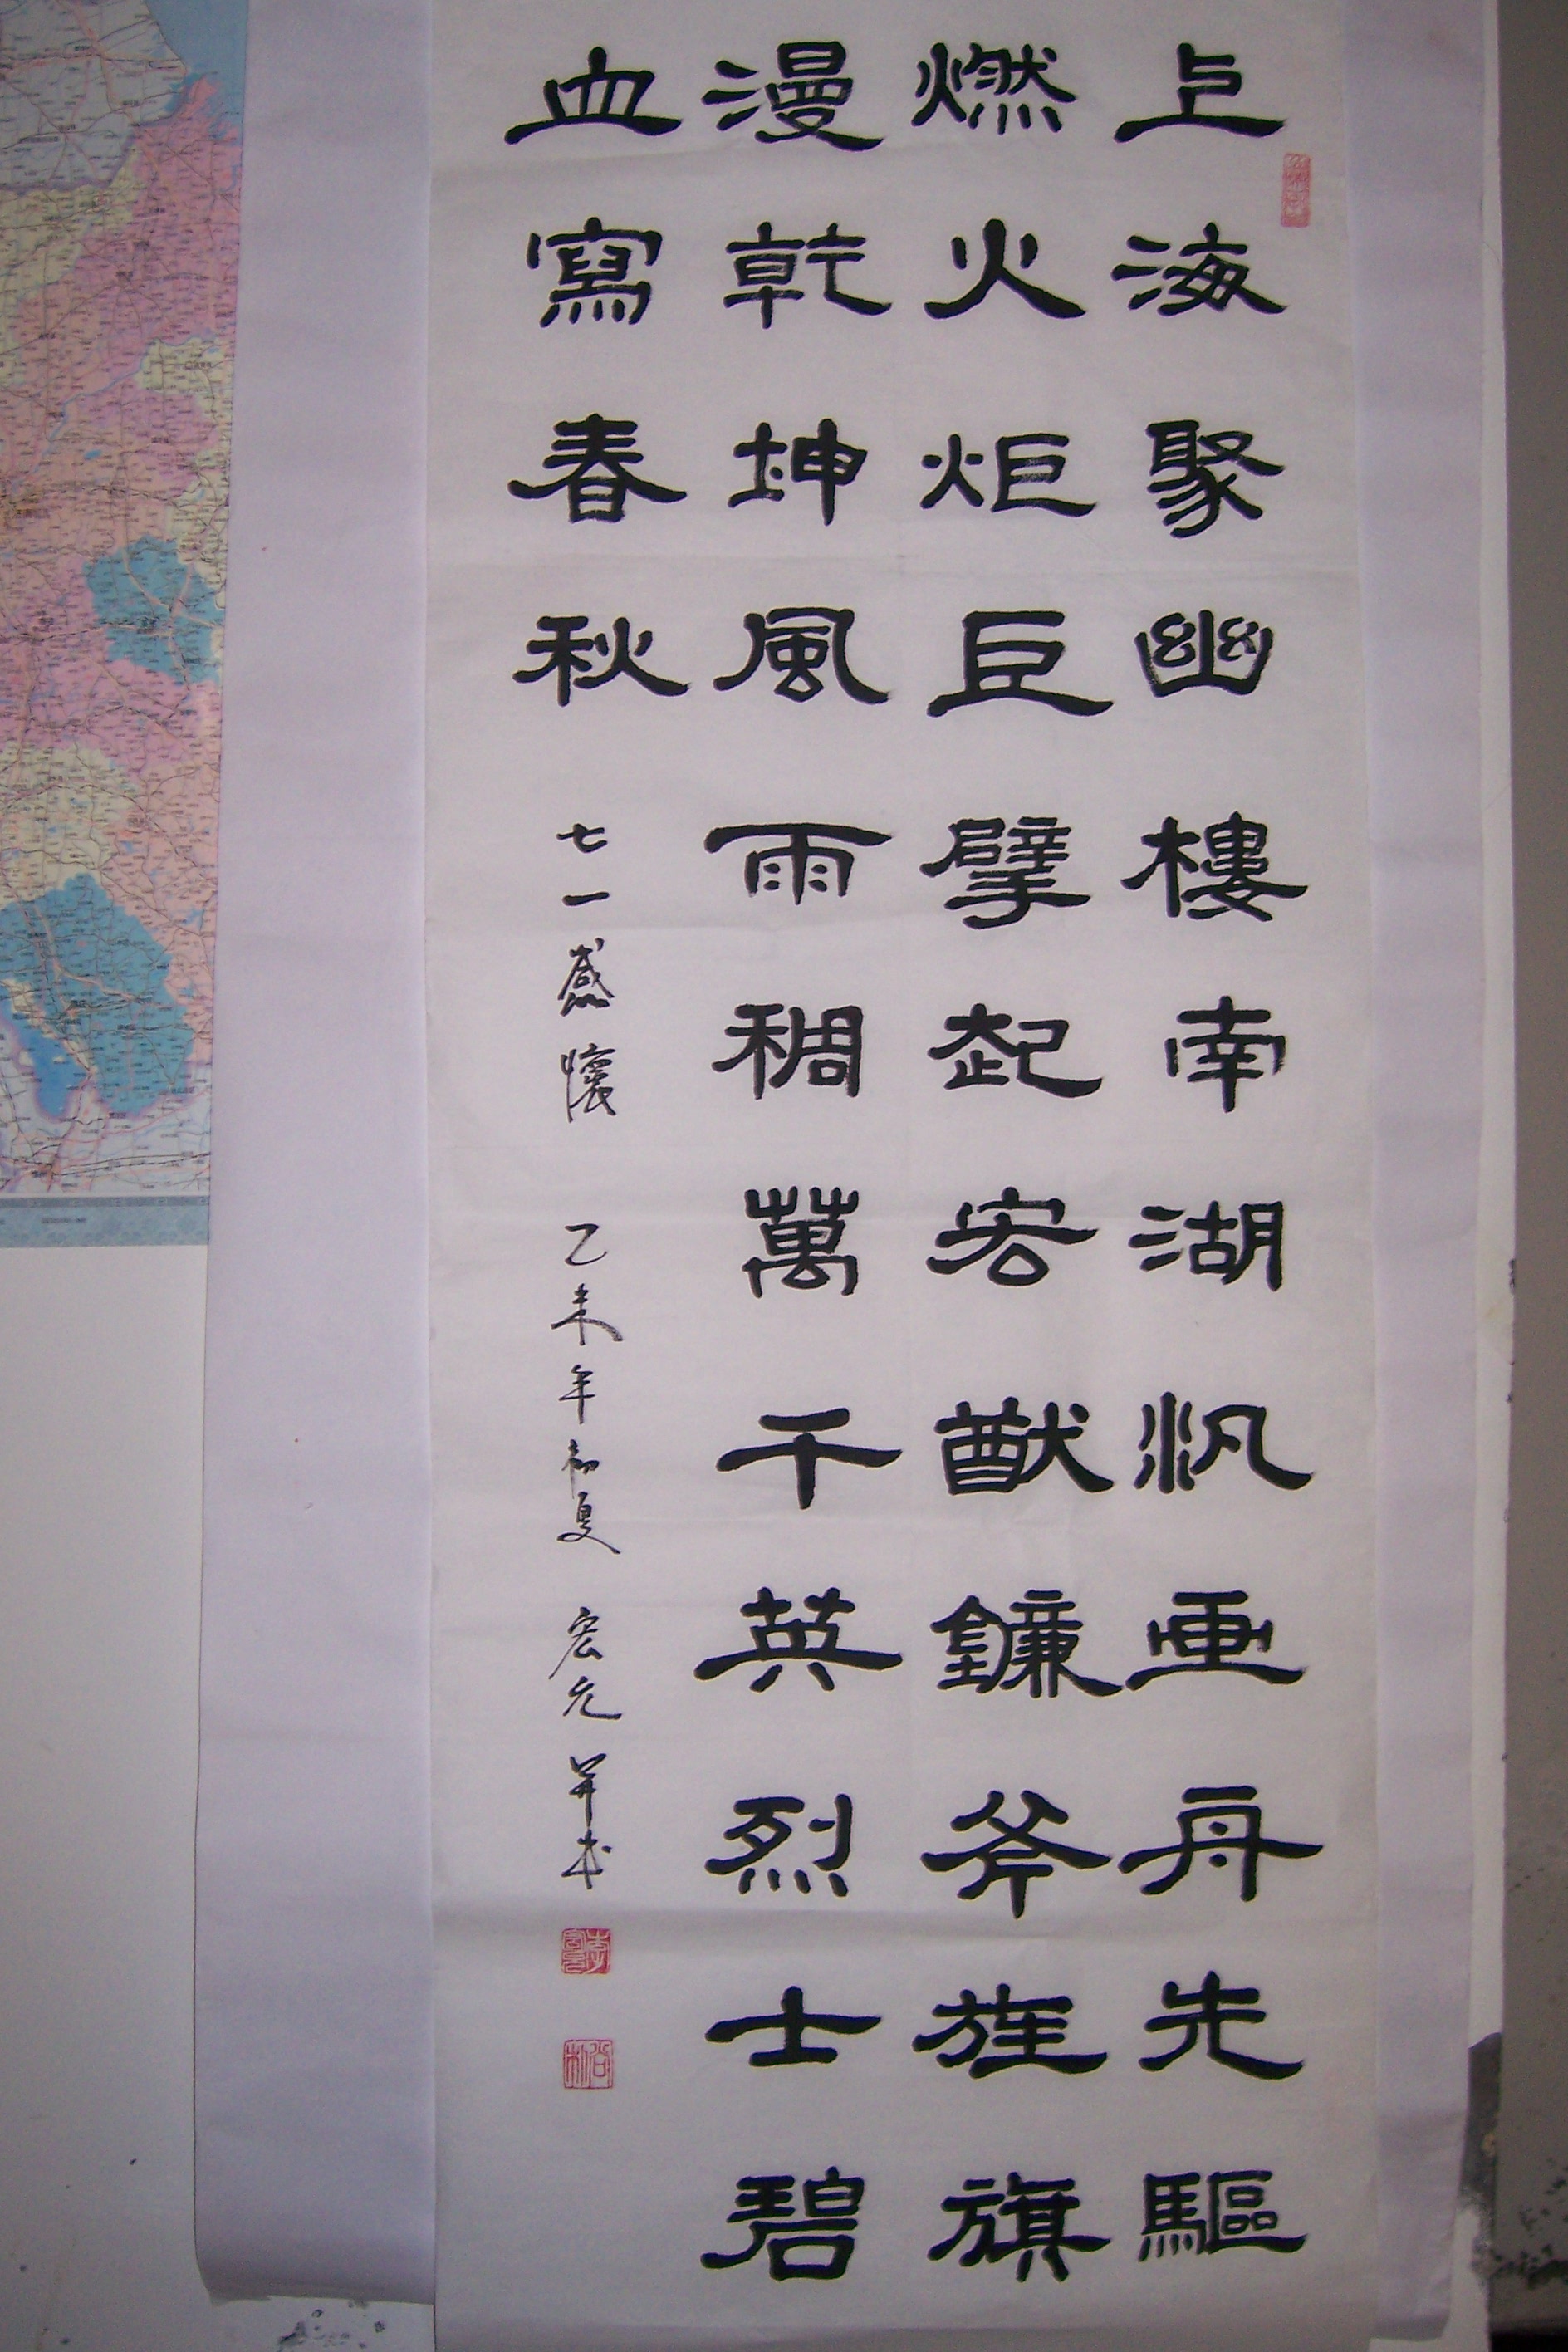 上海聚幽樓南湖汎画舟先驅
燃火炬巨擘起宏猷鐮斧旌旗
漫乾坤風雨稠萬千英烈士碧
血寫春秋
七一感懷 乙未年初夏 宏元 并书